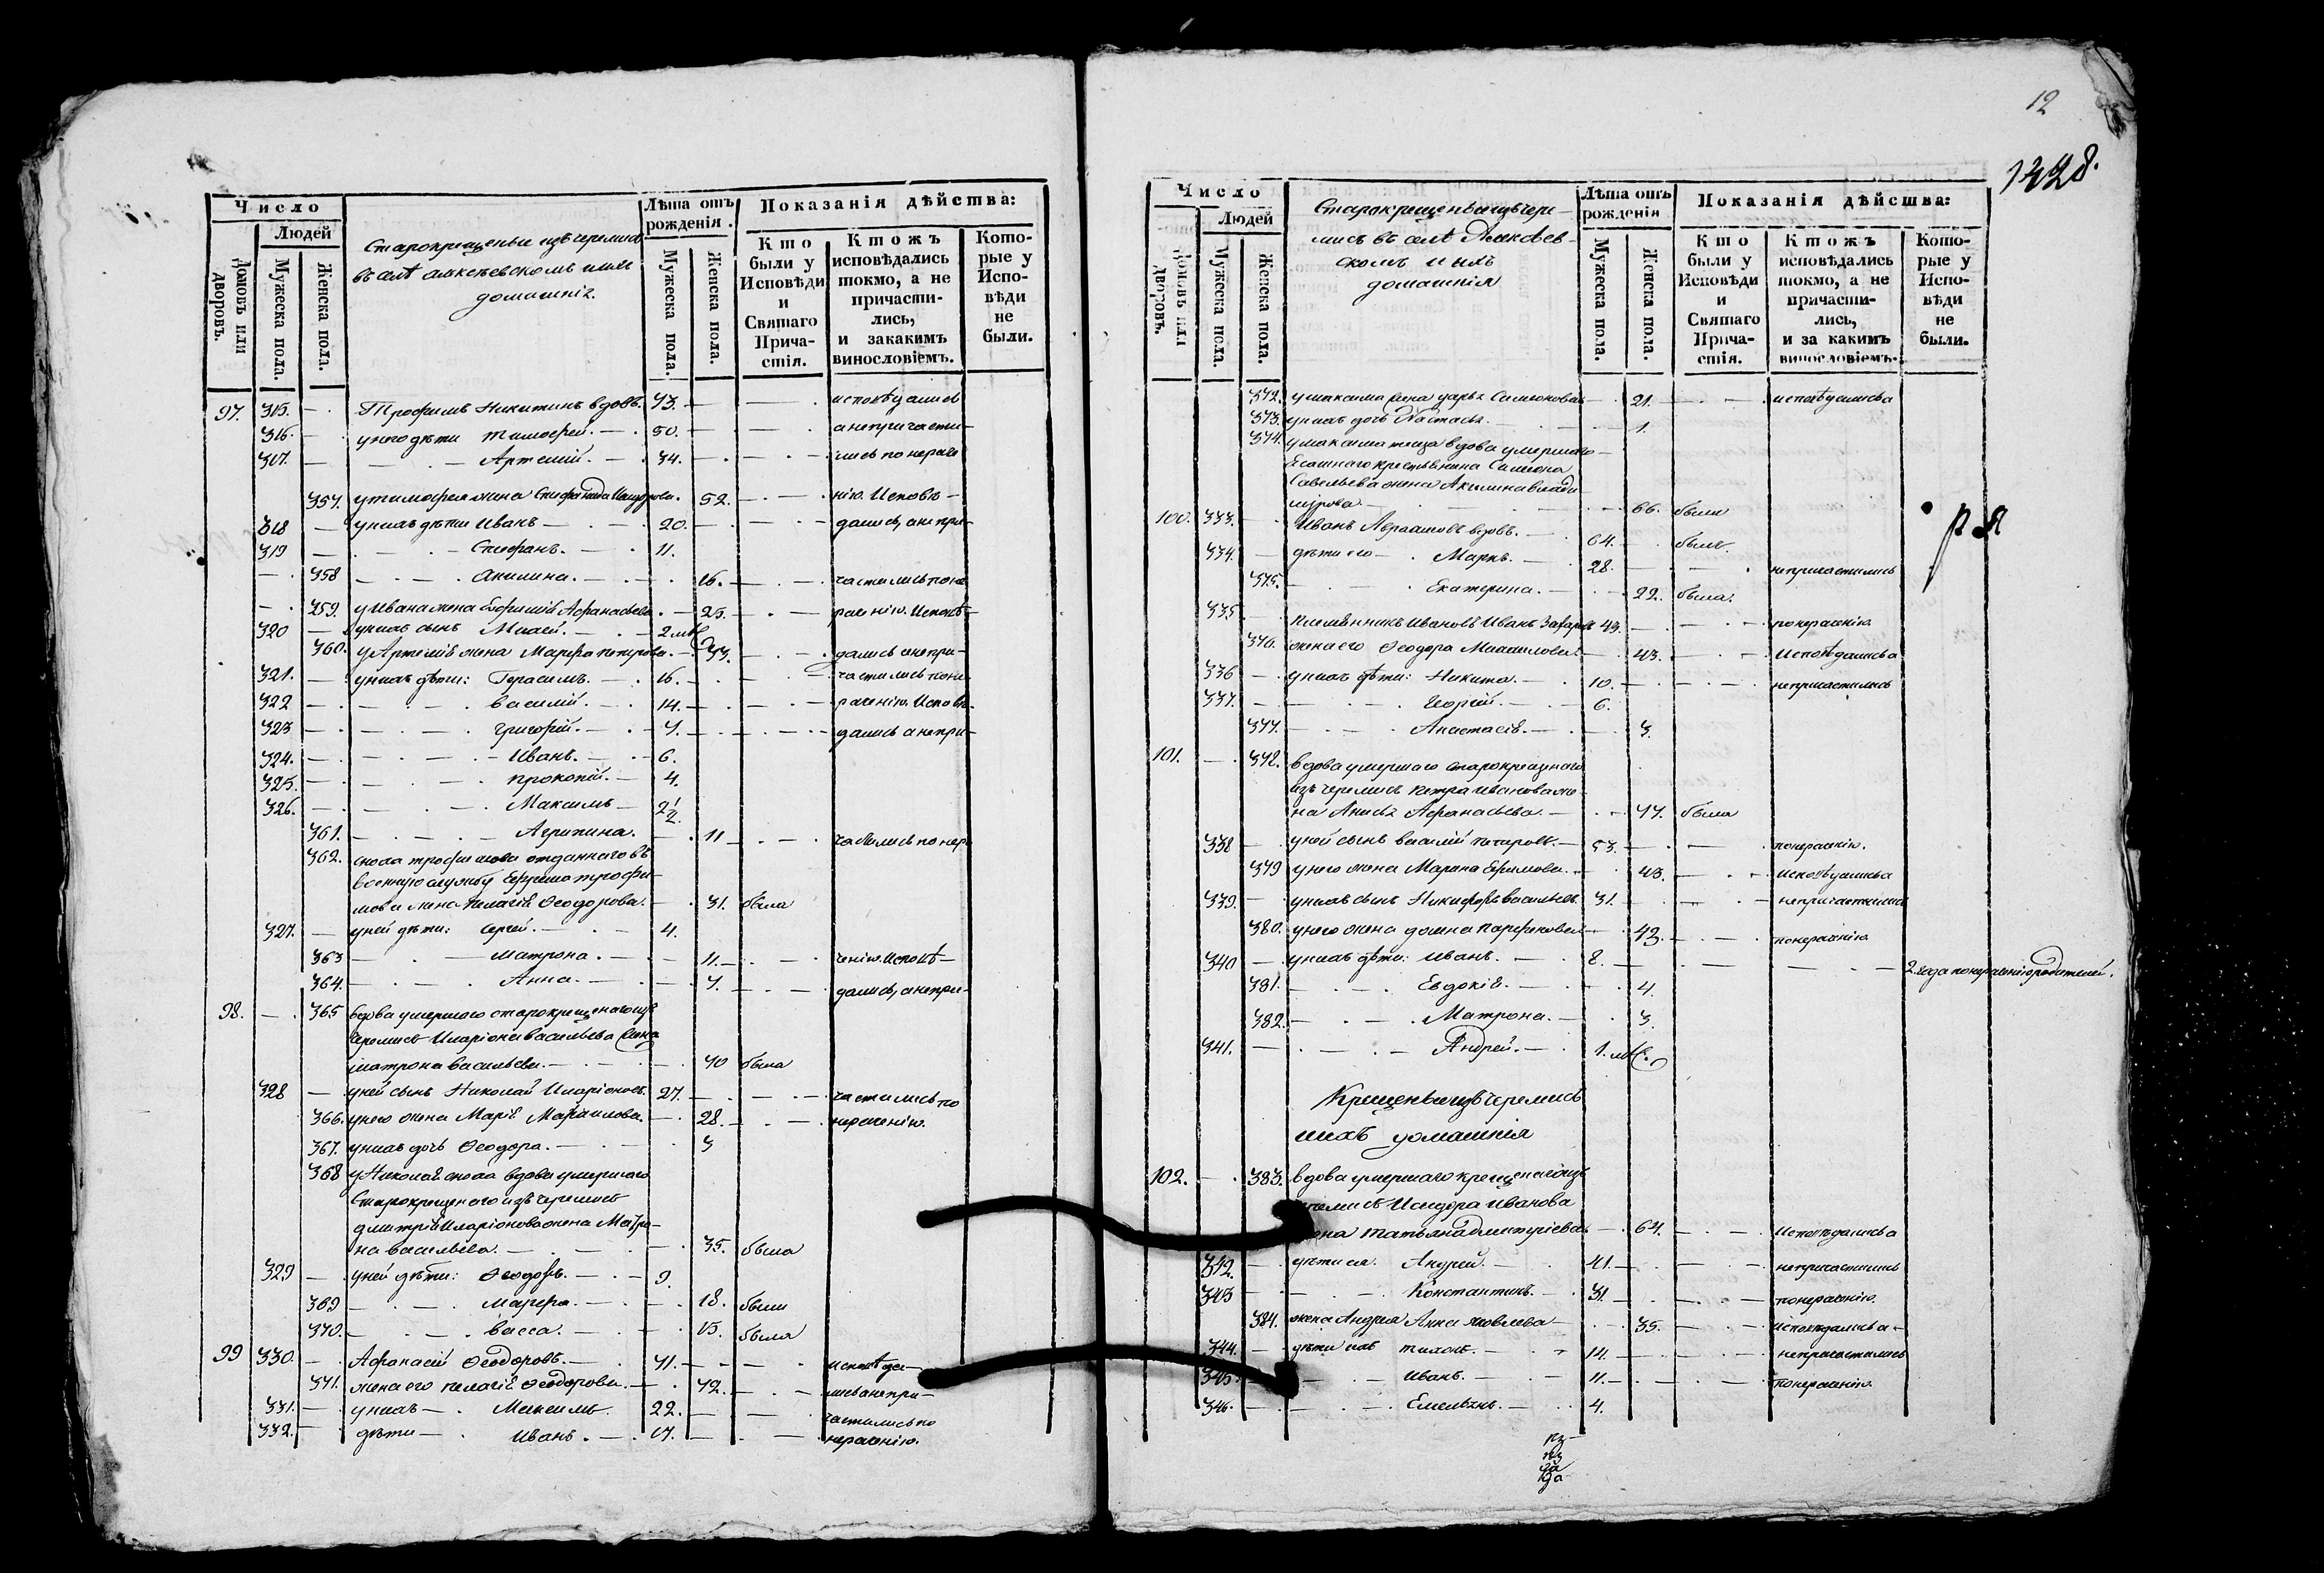 Число
Людей
Домовъ или дворовъ.
Мужеска пола.
Женска пола.
Старокрещеные изъ черемисъ
въ селѣ
домашніе.
Лѣта отъ рожденія.
Мужеска пола.
Женска пола.
Показанія дѣйства:
Кто были у Исповѣди и Святаго Причастія.
Ктожъ исповѣдались токмо, а не причастились, и закакимъ винословіемъ.
Которые у Исповѣди не были.
97. 315. Трофимъ Никитинъ вдовъ. 73.
316. у него дѣти Тимофей. 50. а непричасти-
317. Артемій. 34. лись по нераче
357. у тимофея жена 52. нію. Исповѣ-
318 у нихъ дѣти Иванъ 20. дались, а непри-
319 Стефанъ. 11.
358 Акилина. 16. частились по не
359. у Ивана жена Афанасьева. 25. рачению. Исповѣ-
320 у нихъ сынъ
360. у Артемія жена Марфа петрова. 33. дались а непри-
321. у нихъ дѣти: Герасимъ. 16. частились по не
322 василій. 14. рачению. Исповѣ-
323 григорій. 7. дались а непри-
324. Иванъ. 6.
325. прокопій. 4.
326. Максимъ 2 1/2.
361. Агрипина. 11 частились по нера
362. сноха трофимова отданнаго въ
военную службу Ефрема трофи-
мова жена Пелагія Ѳеодорова. 31. была
327. у ней дѣти: Сергей. 4.
363 Матрона. 11. ченію. Исповѣ-
364. Анна. 7. дались, а непри-
98. 365 вдова умершаго старокрещенаго изъ
черемисъ Иларіона васильева жена
матрона васильева. 70 была
328 у ней сынъ Николай Иларіоновъ. 27. частились по
366. у него жена Марія Михаилова. 28. нерачению.
367. у нихъ дочь Ѳеодора. 3
368 у Николая сноха вдова умершаго
Старокрещенаго изъ черемисъ
дмитрія Иларіонова жена Матро-
на васильева. 35. была
329 у ней дѣти: Ѳеодоръ. 9.
369 Марфа. 18. была
370. васса. 15. была
99 330. Афанасій Ѳеодоровъ. 41. исповѣда-
371. жена его пелагія Ѳеодорова. 42. лись а непри-
331. у нихъ Максимъ. 22. частились по
332. дѣти Иванъ. 17. нерачению.
12
1428.
Число
Людей
Домовъ или дворовъ.
Мужеска пола.
Женска пола.
Старокрещеные изъ чере-
мисъ въ селѣ
скомъ и ихъ
домашнія
Лѣта отъ рожденія
Мужеска пола.
Женска пола.
Показанія дѣйства:
Кто были у Исповѣди и Святаго Причастія.
Ктожъ исповѣдались токмо, а не причастились, и за какимъ винословіемъ.
Которые у Исповѣди не были.
372. у максима жена дарья Симеонова 21.
373. у нихъ дочь Настасья. 1.
374. у максима теща вдова умершаго
Ясашнаго крестьянина Симеона
Савельева жена Акилина влади
мірова. 66. была
100. 333. Иванъ Авраамовъ вдовъ. 64. былъ.
334. дѣти его Маркъ. 28. непричастились
375. Екатерина. 22. была.
335 племянникъ Ивановъ Иванъ Захаровъ 43. по нерачению
376. жена его Ѳеодора Михаилова. 43. Исповѣдались а
336 у нихъ дѣти: Никита. 10. непричастились
337. Георгій. 6.
377. Анастасія. 3.
101. 378. вдова умершаго старокрещенаго
изъ черемисъ петра иванова же-
на Анисья Афанасьева. 77. была
338 у ней сынъ василій петровъ. 53. по нерачению.
379 у него жена Марина Ефимова. 43.
339. у нихъ сынъ Никифоръ васильевъ 31. непричастились
380. у него жена домна парфенова 43. по нерачению
340 у нихъ дѣти: Иванъ. 8. 2 года по нерачению родителей.
381. Евдокія. 4.
382. Матрона. 3.
341. Андрей. 1.
Крещеные изъ черемисъ
и ихъ домашнія
102. 383. вдова умершаго крещенаго изъ
Исидора иванова
татьяна дмитріева 64. Исповѣдались а
342. дѣти ея Андрей. 41. непричастились
343 Константинъ. 31. по нерачению.
384. жена Андрея Анна яковлева 35. исповѣдались а
344. дѣти ихъ тихонъ. 14. непричастились
345. Иванъ. 11. по нерачению.
346. Емельянъ. 4.